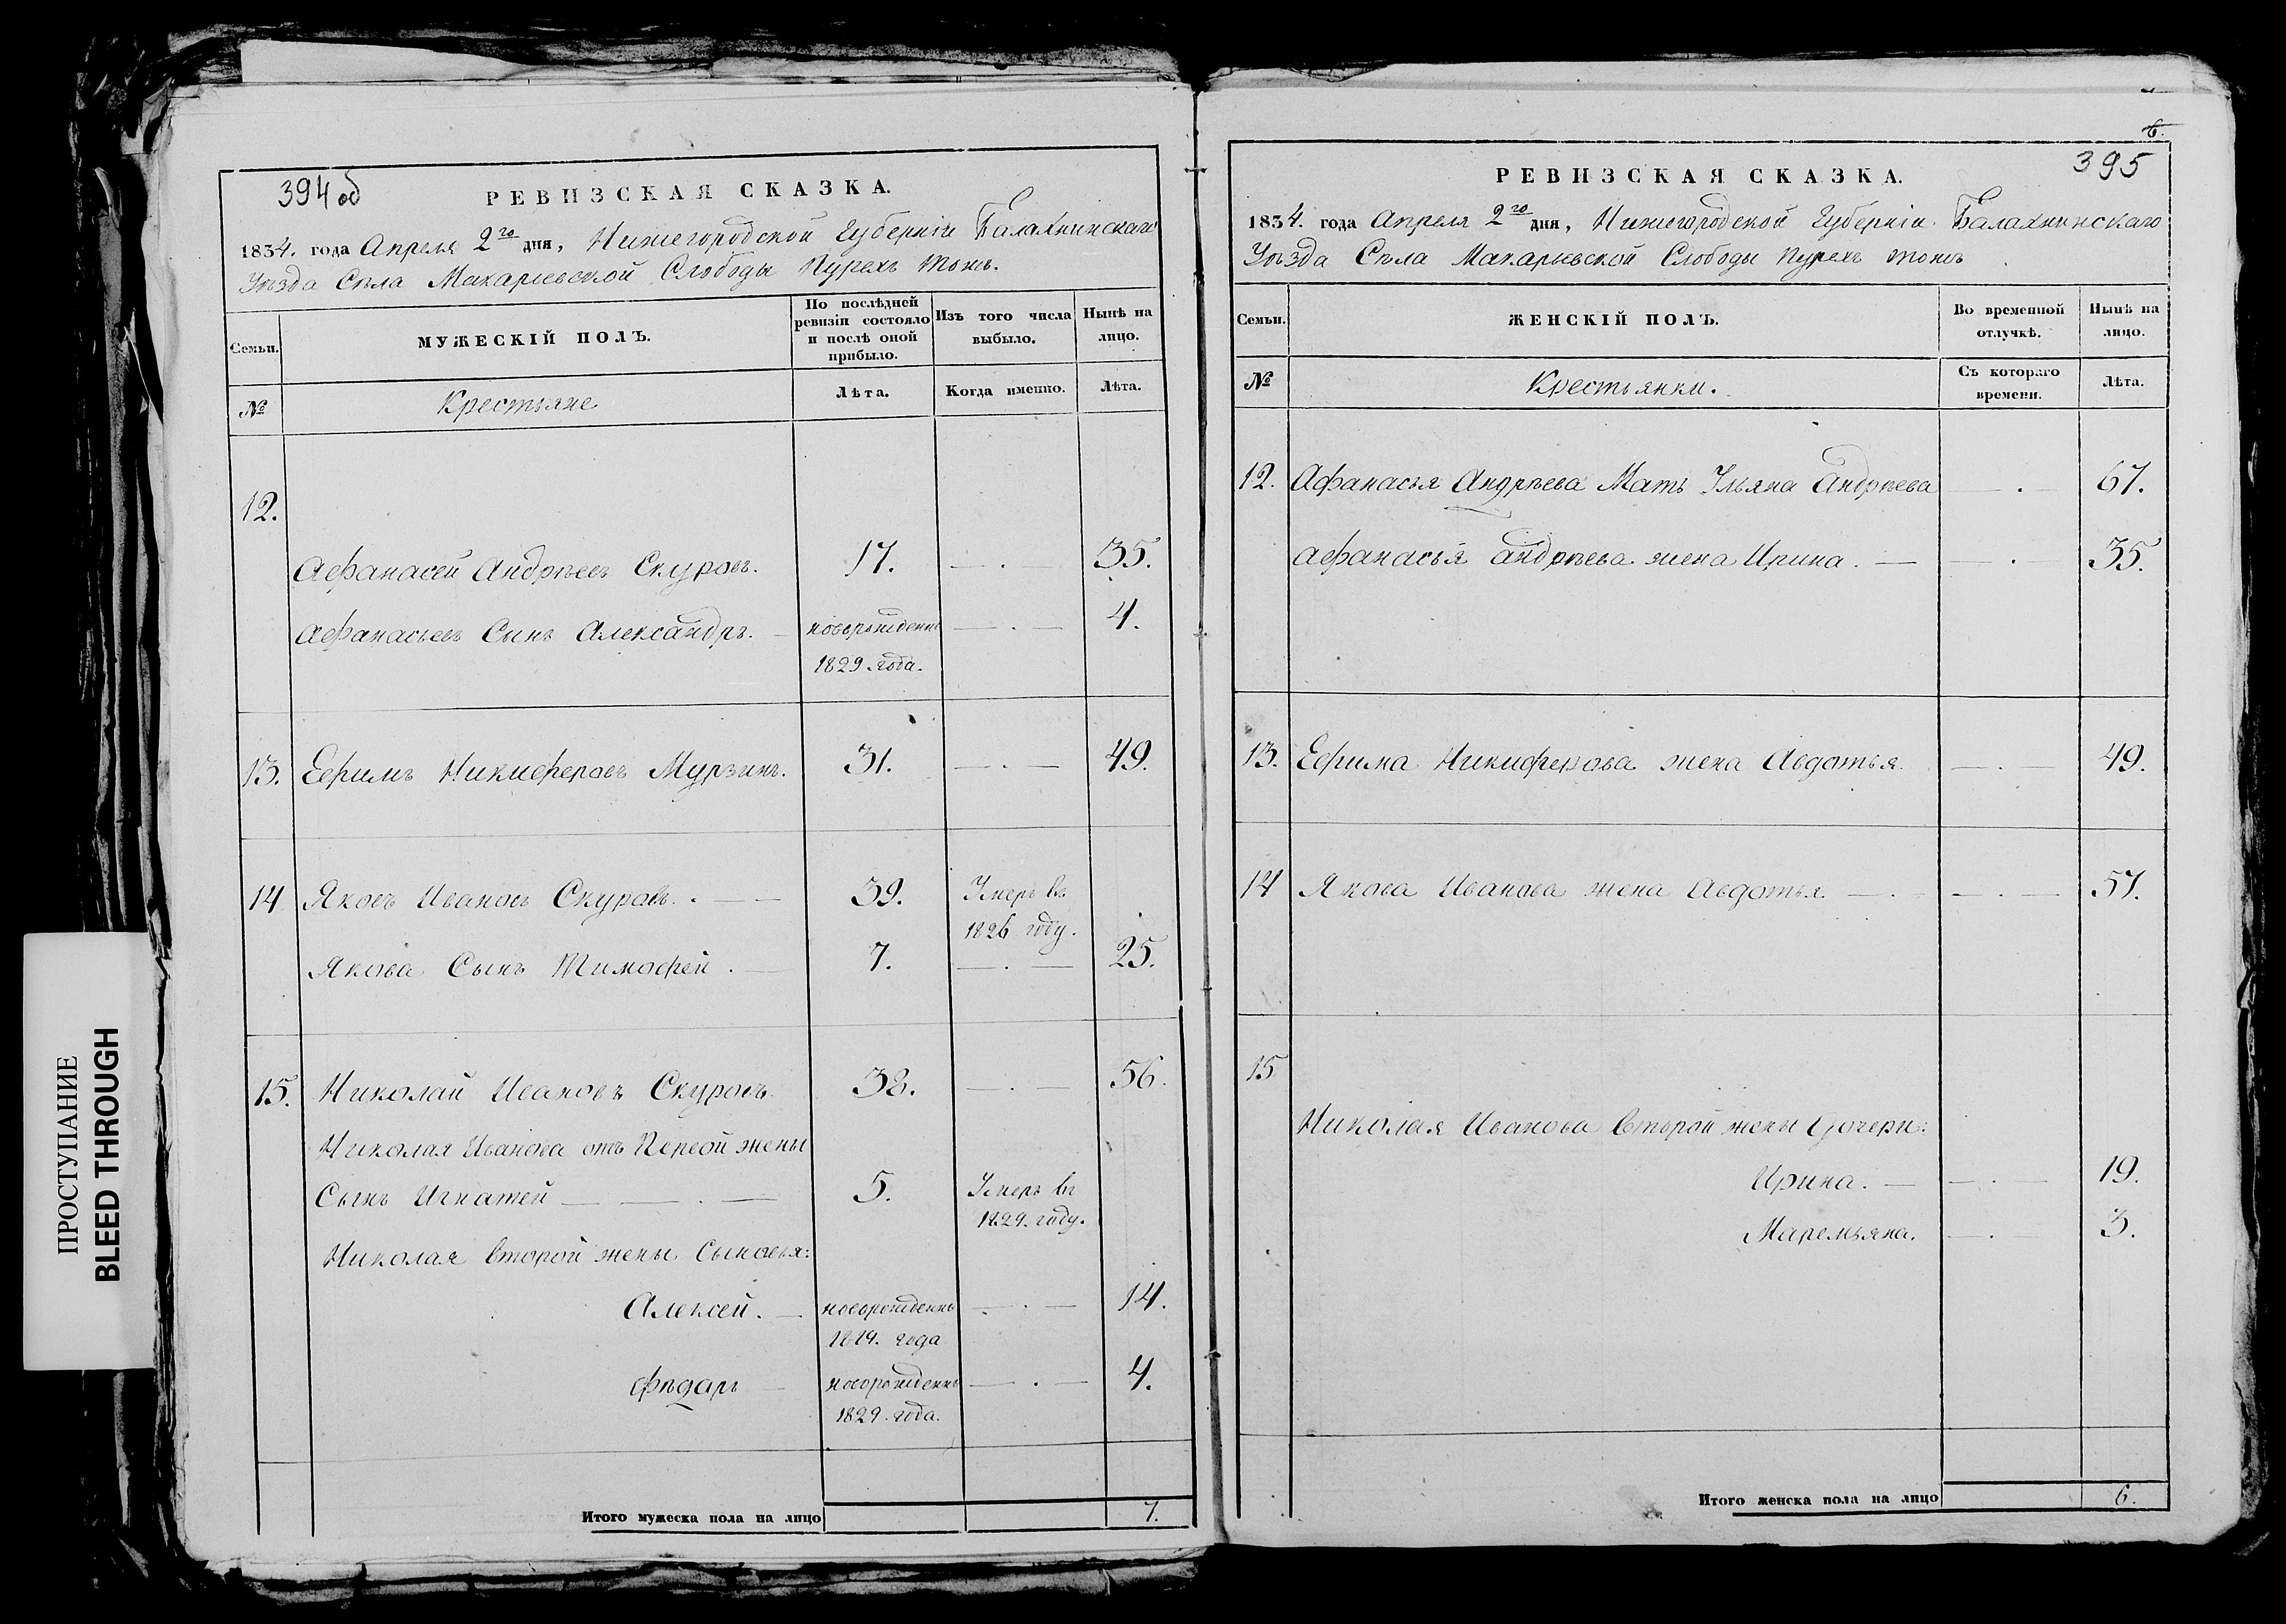 394 об
РЕВИЗСКАЯ СКАЗКА.
1834. года Апреля 2го дня, Нижегородской Губерніи Балахнинскаго
Уѣзда Сѣла Макарьевской Слободы Пурехъ тожъ.
Семьи. МУЖЕСКІЙ ПОЛЪ. По послѣдней ревизіи состояло и послѣ оной прибыло. Изъ того числа выбыло. Нынѣ на лицо.
№ Крестьяне Лѣта. Когда именно. Лѣта.
12.
Афанасей Андрѣевъ Скуровъ. 17. — . 35.
Афанасьевъ Сынъ Александръ. — новорожденнъ — . — 4.
1829. года.
13. Ефимъ Никиферовъ Мурзинъ. 31. — . — 49.
14 Яковъ Ивановъ Скуровъ. . — — 39. Умеръ въ
1826 году.
Якова Сынъ Тимофей . — 7. — . — 25.
15. Николай Ивановъ Скуровъ. 38. — . — 56.
Николая Иванова отъ Первой жены
Сынъ Игнатей — — . — 5. Умеръ въ
1829. году.
Николая второй жены Сыновья:
Алексей. — новорожденнъ — . — 14.
1819. года
Фѣдаръ — новорожденнъ — . — 4.
1829. года.
Итого мужеска пола на лицо 7.
6.
395
РЕВИЗСКАЯ СКАЗКА.
1834. года Апреля 2го дня, Нижегородской Губерніи Балахнинскаго
Уѣзда Сѣла Макарьевской Слободы Пурехъ тожъ
Семьи. ЖЕНСКІЙ ПОЛЪ. Во временной отлучкѣ. Нынѣ на лицо.
№ Крестьянки. Съ котораго времени. Лѣта.
12. Афанасья Андрѣева Мать Ульяна Андрѣева — . — 67.
Афанасья Андрѣева жена Ирина. — — . — 35.
13. Ефима Никиферова жена Авдотья. — . — 49.
14 Якова Иванова жена Авдотья. — . — . — 57.
15
Николая Иванова второй жены Дочери:
Ирина. — — . — 19.
Маремьяна. — . — 3.
Итого женска пола на лицо 6.
ПРОСТУПАНИЕ
BLEED THROUGH